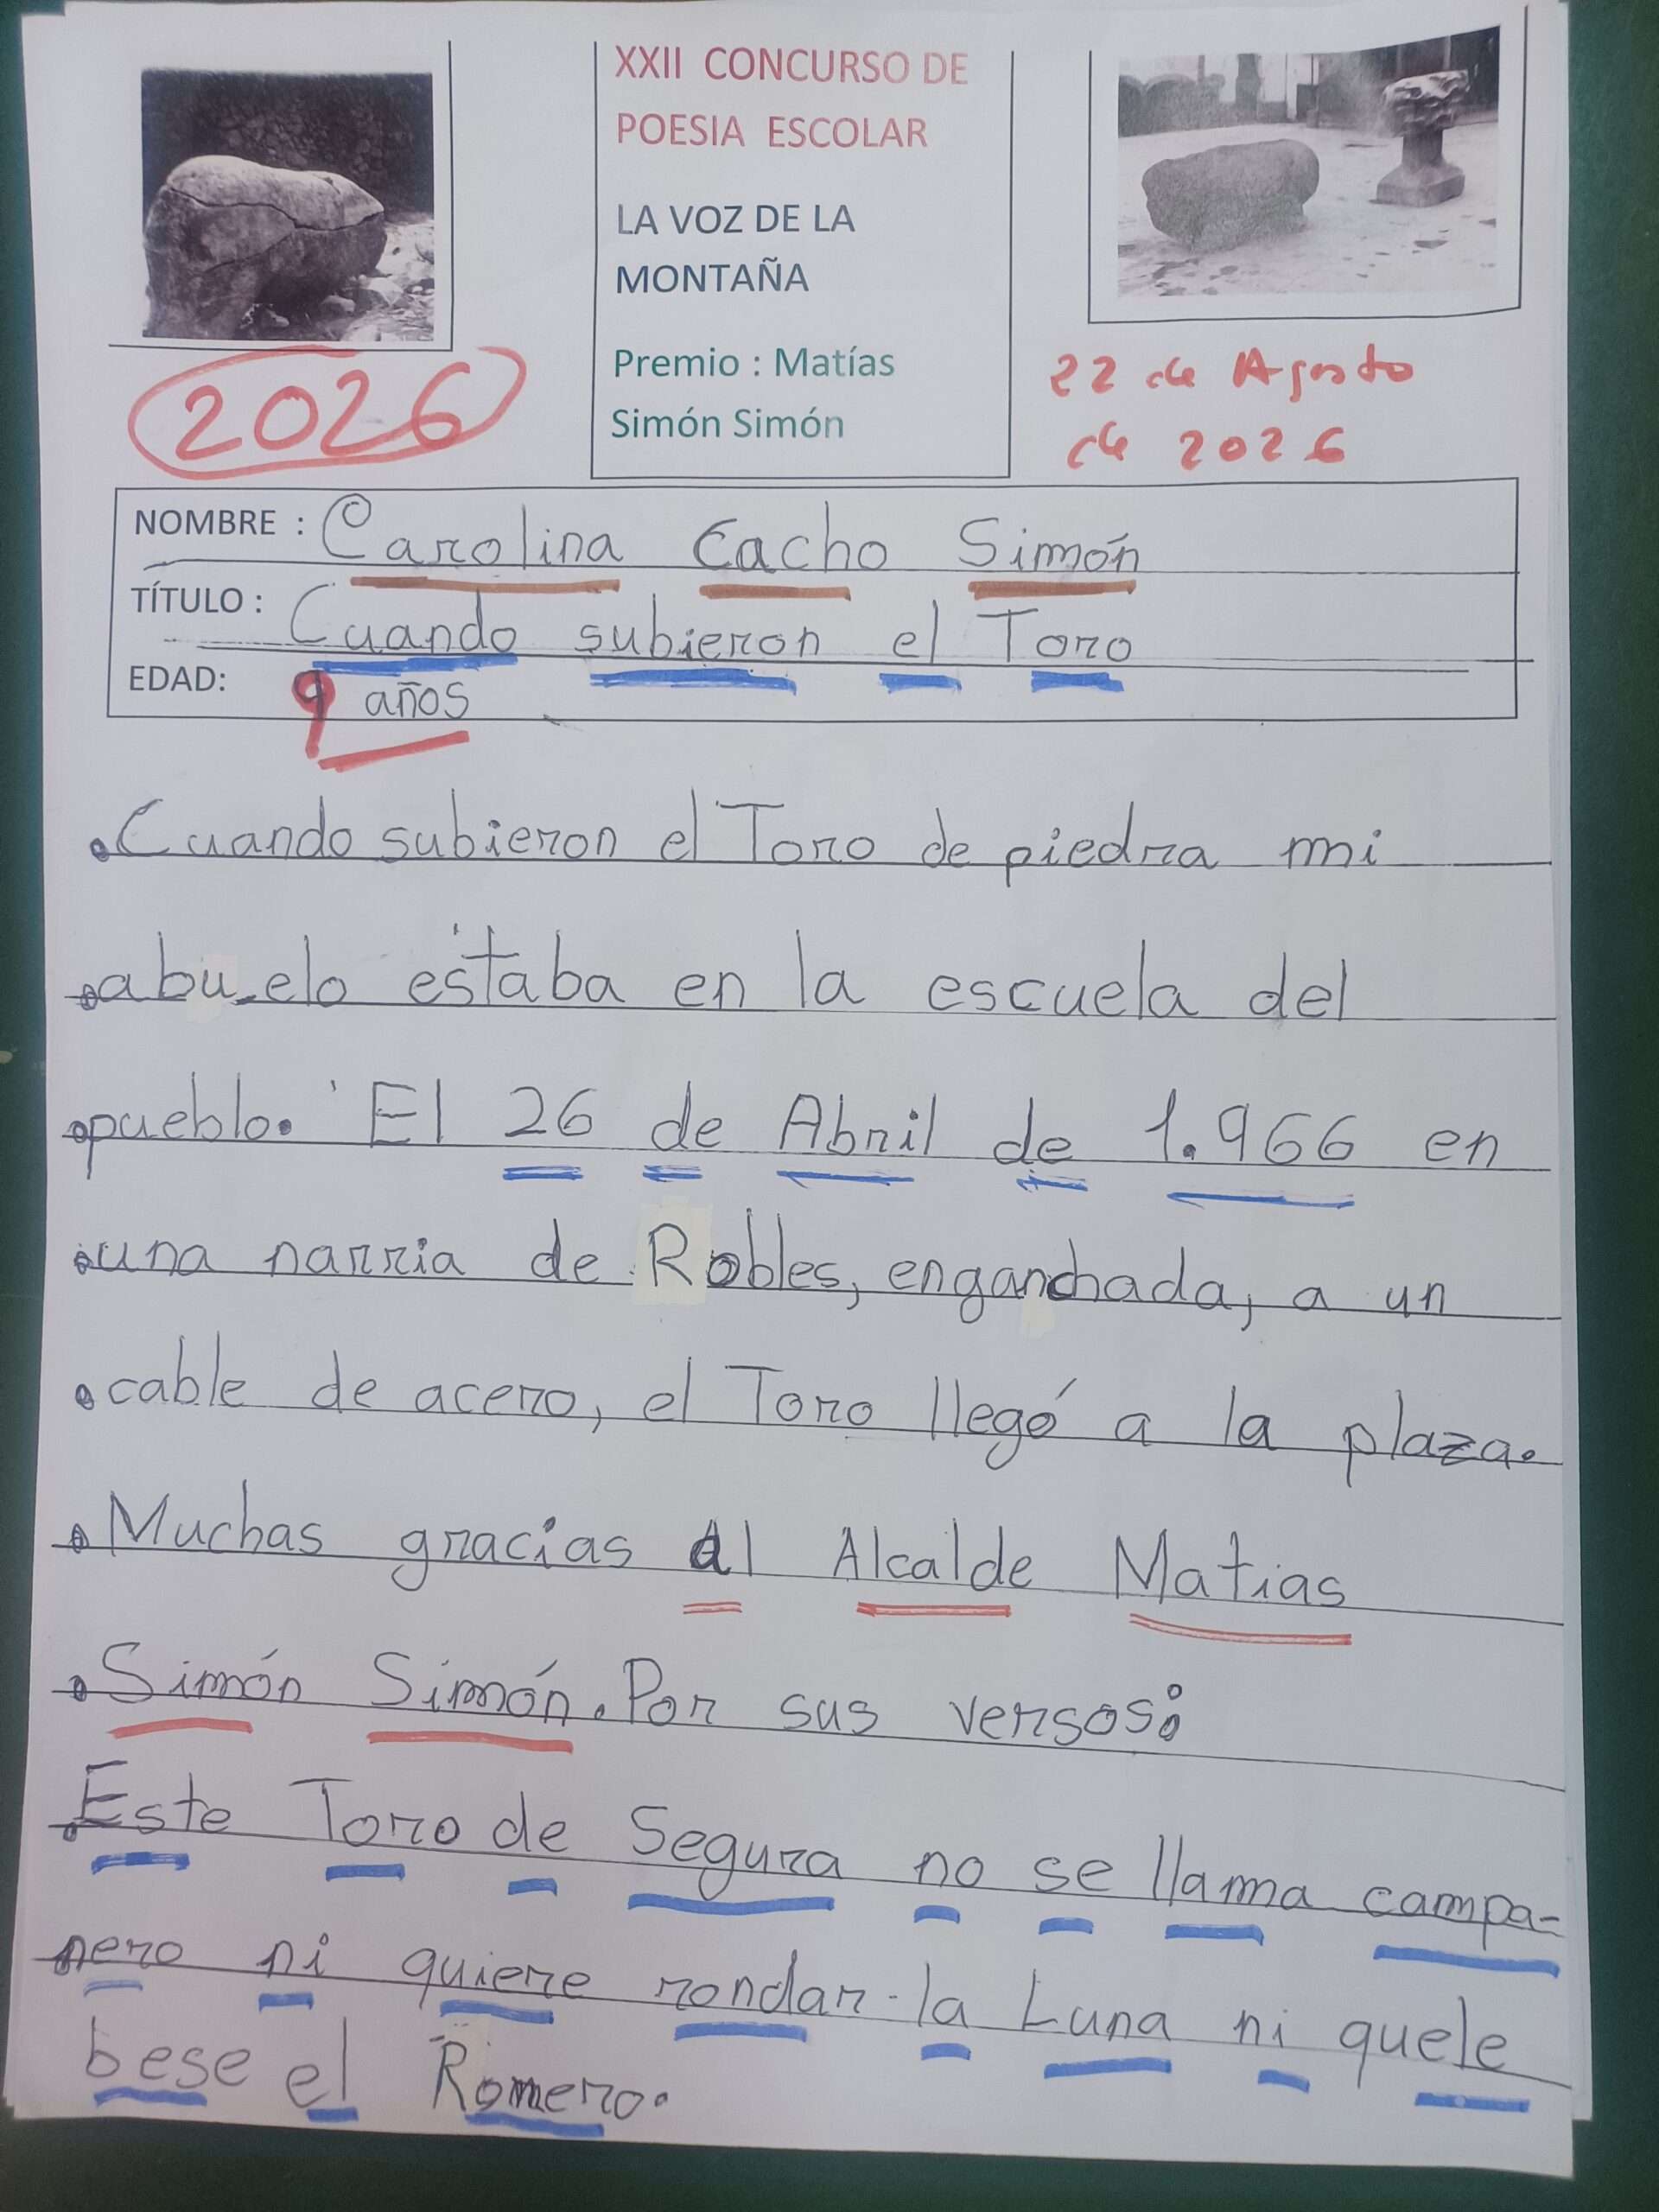 XXII CONCURSO DE
POESIA ESCOLAR
LA VOZ DE LA
MONTAÑA
Premio : Matías
Simón Simón
2026
22 de Agosto
de 2026
NOMBRE : Carolina Cacho Simón
TÍTULO : Cuando subieron el Toro
EDAD: 9 años
Cuando subieron el Toro de piedra mi
abuelo estaba en la escuela del
pueblo. El 26 de Abril de 1.966 en
una narria de Robles, enganchada, a un
cable de acero, el Toro llegó a la plaza.
Muchas gracias al Alcalde Matias
Simón Simón. Por sus versos:
Este Toro de Segura no se llama campa-
nero ni quiere rondar la Luna ni quele
bese el Romero.